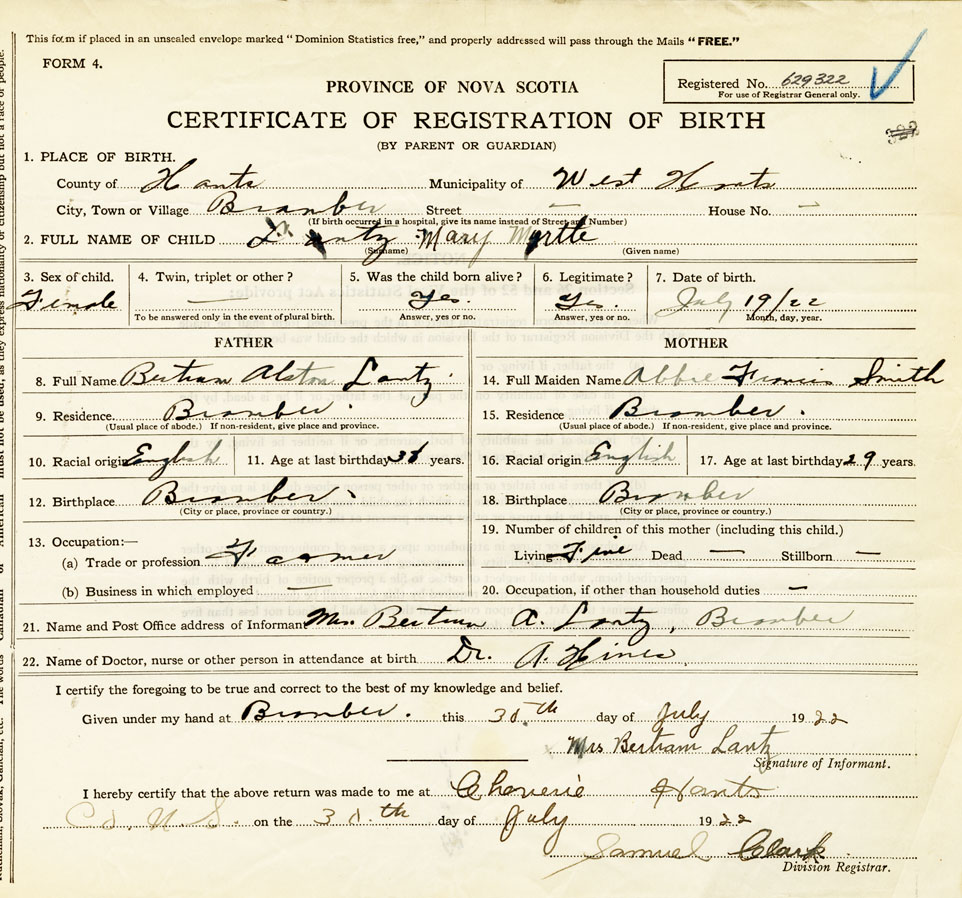 This form if placed in an unsealed envelope marked "Dominion Statistics free," and properly addressed will pass through the Mails "FREE."
FORM 4.
Registered No. 629322
For use of Registrar General only.
PROVINCE OF NOVA SCOTIA
CERTIFICATE OF REGISTRATION OF BIRTH
(BY PARENT OR GUARDIAN)
1. PLACE OF BIRTH.
County of Hants Municipality of West Hants
City, Town or Village Bramber Street — House No. —
(If birth occurred in a hospital, give its name instead of Street and Number)
2. FULL NAME OF CHILD Lantz Mary Myrtle
(Surname) (Given name)
3. Sex of child. 4. Twin, triplet or other? 5. Was the child born alive? 6. Legitimate? 7. Date of birth.
Female — Yes. Yes. July 19/22
To be answered only in the event of plural birth. Answer, yes or no. Answer, yes or no. Month, day, year.
FATHER MOTHER
8. Full Name Bertram Alston Lantz. 14. Full Maiden Name Abbie Francis Smith
9. Residence. Bramber. 15. Residence Bramber.
(Usual place of abode.) If non-resident, give place and province. (Usual place of abode.) If non-resident, give place and province.
10. Racial origin English 11. Age at last birthday 38 years. 16. Racial origin English 17. Age at last birthday 29 years.
12. Birthplace Bramber. 18. Birthplace Bramber
(City or place, province or country.) (City or place, province or country.)
19. Number of children of this mother (including this child.)
13. Occupation:—
(a) Trade or profession Farmer Living Five Dead — Stillborn —
(b) Business in which employed — 20. Occupation, if other than household duties —
21. Name and Post Office address of Informant Mrs. Bertram A. Lantz, Bramber
22. Name of Doctor, nurse or other person in attendance at birth Dr. A. Hines.
I certify the foregoing to be true and correct to the best of my knowledge and belief.
Given under my hand at Bramber. this 30.th day of July 1922
Mrs Bertram Lantz
Signature of Informant.
I hereby certify that the above return was made to me at Cheverie Hants
Co. N. S. on the 30.th day of July 1922
Samuel Clark
Division Registrar.